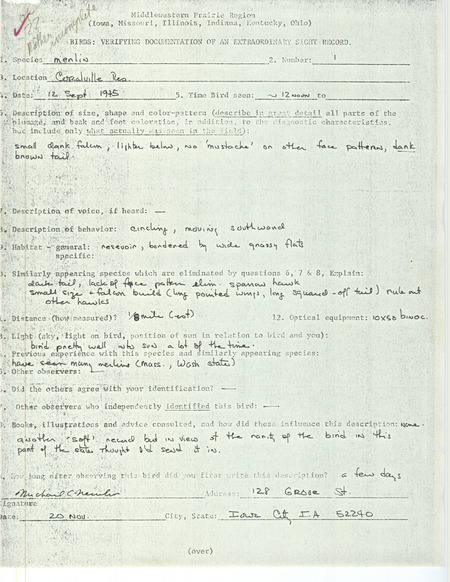 rather incomplete
Midwestern Prairie Region
(Iowa, Missouri, Illinois, Indiana, Kentucky, Ohio)
BIRDS: VERIFYING DOCUMENTATION OF AN EXTRAORDINARY SIGHT RECORD.
1. Species merlin 2. Number: 1
3. Location Coralville Res.
4. Date: 12 Sept 1975 5. Time Bird seen: ~ 12 noon to
6. Description of size, shape and color-pattern (describe in great detail all parts of the
plumage, and beak and foot coloration, in addition, to the diagnostic characteristics,
but include only what actually was seen in the field):
small dark falcon, lighter below, no 'mustache' or other face patterns, dark
brown tail.
7. Description of voice, if heard: —
8. Description of behavior: circling, moving southward
9. Habitat - general: resevoir, bordered by wide grassy flats
specific:
Similarly appearing species which are eliminated by questions 6, 7 & 8, Explain:
dark tail, lack of face pattern elim. sparrow hawk
small size + falcon build (long pointed wings, long squared-off tail) rule out
other hawks
Distance (how measured)? mile (est) 12. Optical equipment: 10x50 binoc.
Light (sky, light on bird, position of sun in relation to bird and you):
bird pretty well into sun a lot of the time.
Previous experience with this species and similarly appearing species:
have seen many merlins (Mass., Wash state)
Other observers: —
Did the others agree with your identification? —
Other observers who independently identified this bird: —
Books, illustrations and advice consulted, and how did these influence this description: none.
another "soft" record but in view of the rarity of the bird in this
part of the state thought I'd send it in.
How long after observing this bird did you first write this description? a few days
Michael C Newlon Address: 128 Grove St.
Signature
Date: 20 Nov. City, State: Iowa City IA 52240
(over)